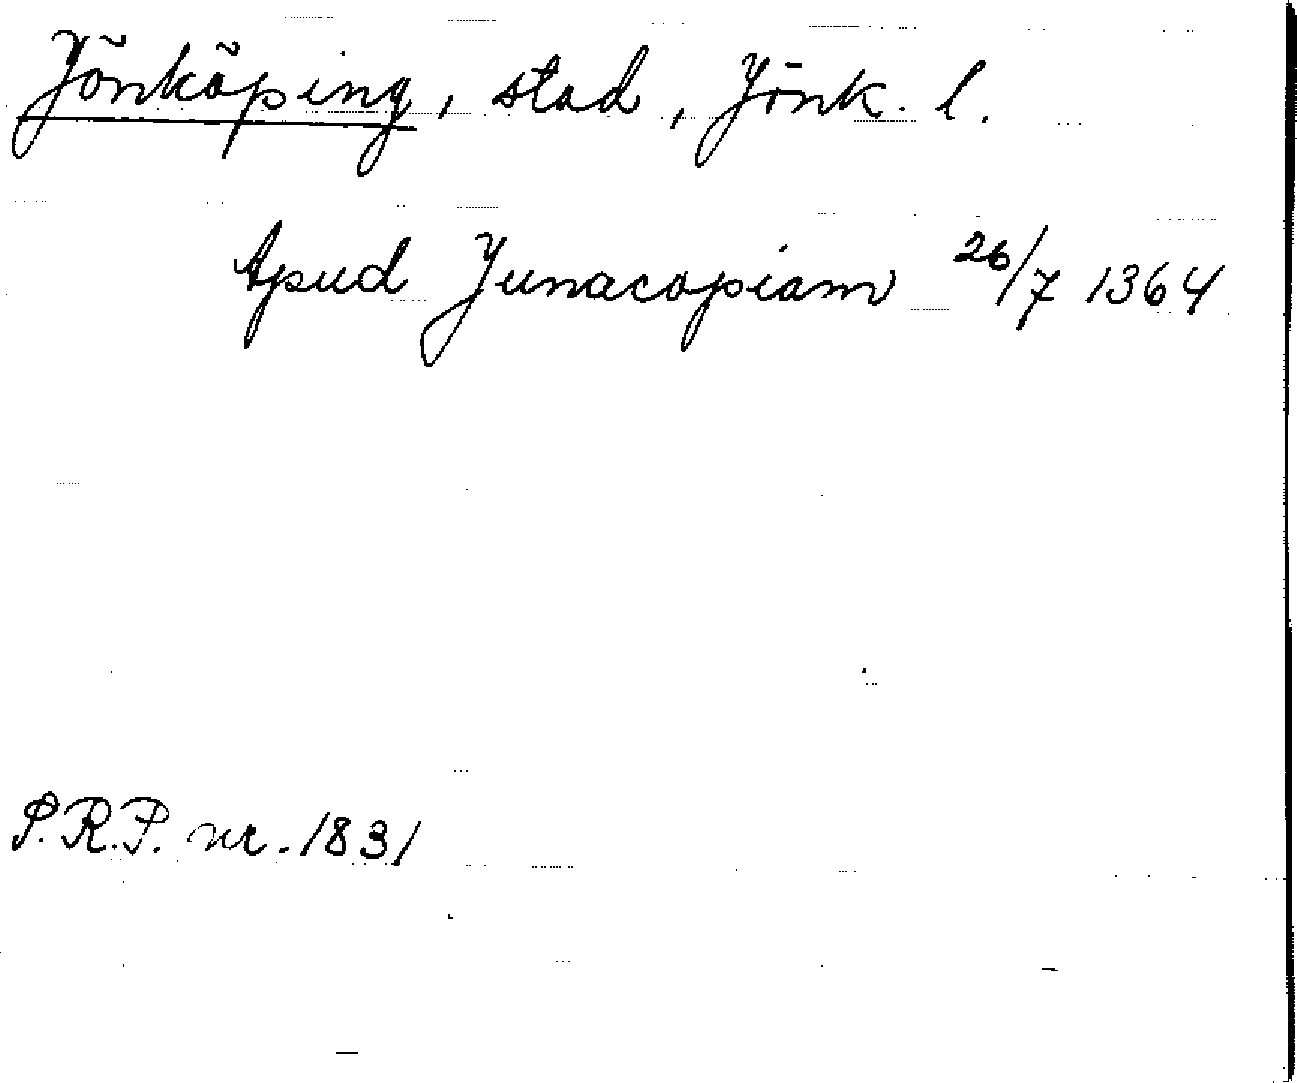 Jönköping, stad, Jönk. l.
Apud Junacopiam 26/7 1364
S.R.P. nr. 1831